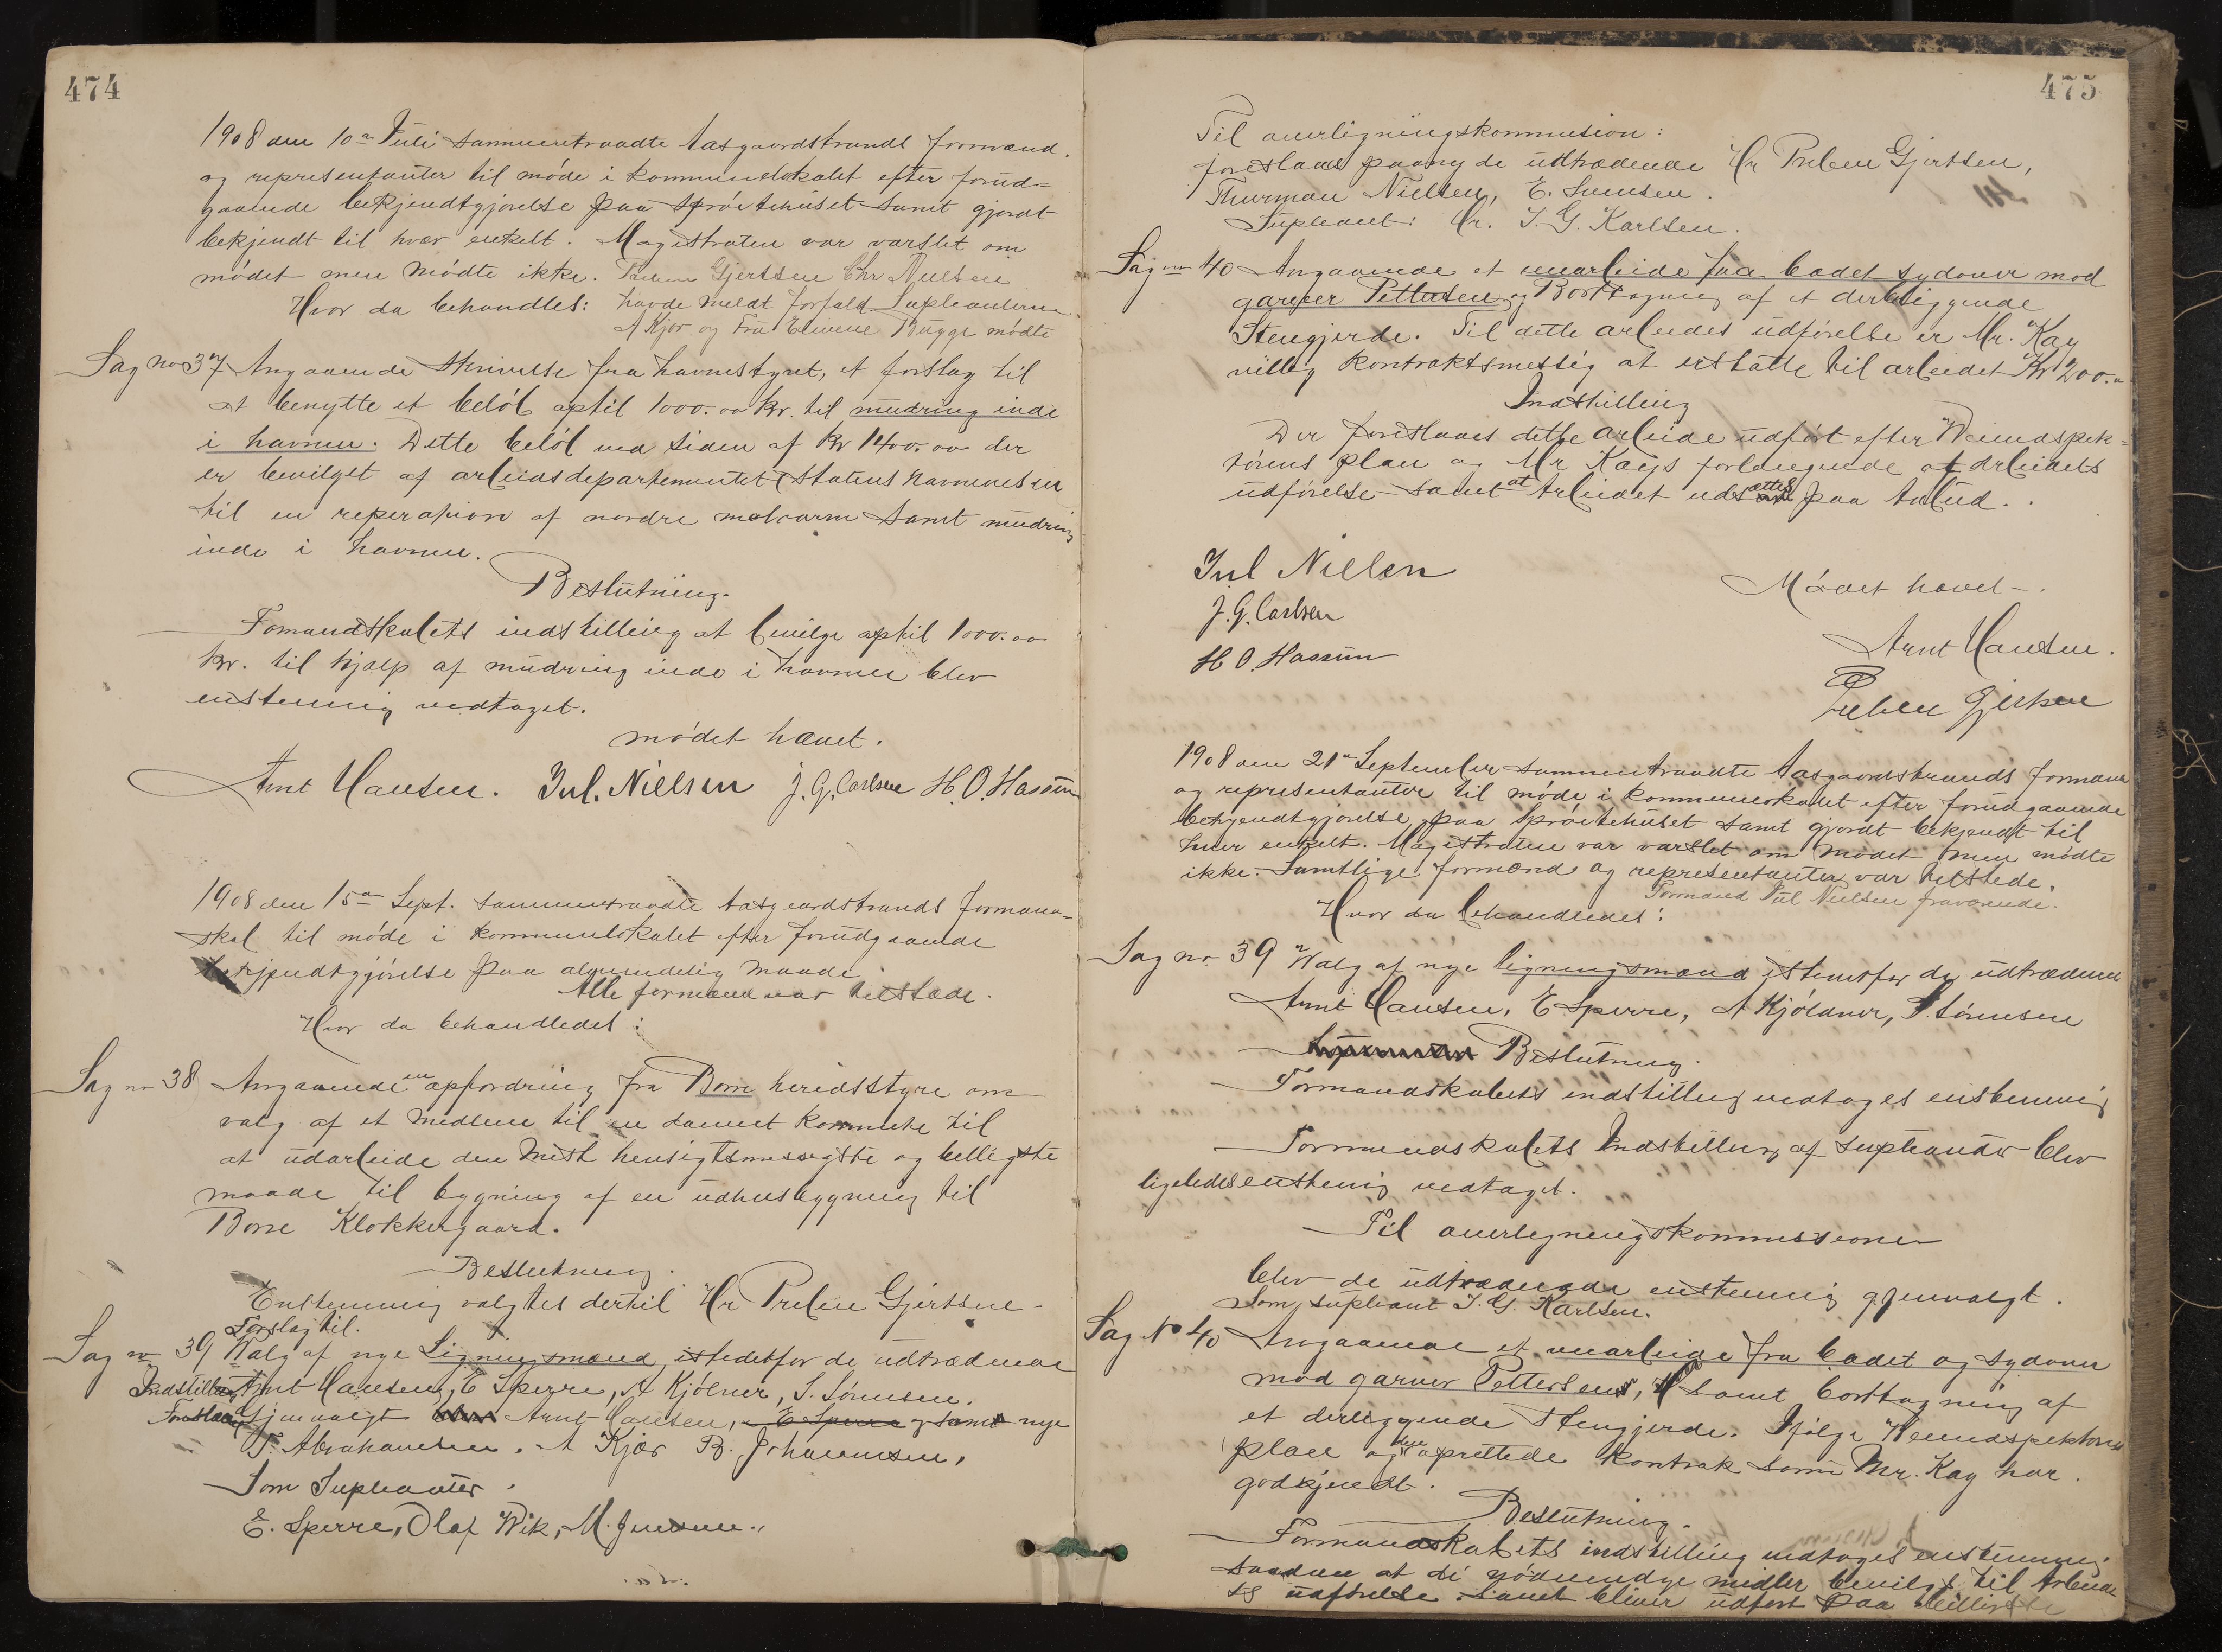 474
1908 den 10de Juli sammentraadte Aasgaardstrands formænd
og representanter til møde i kommunelokalet efter forud-
gaaende bekjendtgjørelse paa Sprøitehuset samt gjordt
bekjendt til hver enkelt. Magistraten var varslet om
mødet men mødte ikke. Preben Gjertsen Chr Nielsen
Hvor da behandles: havde meldt forfald. Supleanterne
A Kjær og Fru Elivine Bugge mødte
Sag no 37 Angaaende skrivelse fra havnestyret, et forslag til
at benytte et beløb optil 1000.00 kr. til mudring inde
i havnen. Dette beløb ved siden af kr 1400.00 der
er bevilget af arbeidsdepartementet (Statens havnevesen
til en reperation af nordre moloarm samt mudring
inde i havnen.
Beslutning.
Fomandskabets indstilling at bevilge optil 1000.00
kr. til hjælp af mudring inde i havnen blev
enstemmig vedtaget.
mødet hævet.
Arnt Hansen. Jul. Nielsen J. G. Carlsen H. O. Hassum
1908 den 15de Sept. sammentraadte Aasgaardstrands formand-
skab til møde i kommunelokalet efter forudgaaende
bekjendtgjørelse paa almindelig maade
Alle formænd var tilstæde.
Hvor da behandledes:
Sag no 38 Angaaende en opfordring fra Borre heridsstyre om
valg af et medlem til en dannet kommite til
at udarbeide den mest hensigtsmessigste og belligste
maade til bygning af en udhusbygning til
Borre Klokkergaard.
Beslutning.
Enstemmig valgtes dertil Hr Preben Gjertsen
Forslag til.
Sag no 39 Walg af nye Ligningsmænd istedetfor de udtrædende
Indstilling Arnt Hansen, E Sperre, A Kjölner, S. Sörensen.
Foreslaaes gjenvalgt Arnt Hansen, E Sperre og samt nye
T. Abrahamsen. A Kjær B. Johannesen.
Som Supleanter
E. Sperre, Olaf Wik, M. Jensen.
475
Til overligningskommision:
foreslaaes paany de udtrædende Hr Preben Gjertsen,
Thurman Nielsen, E. Svensen.
Supleant: Hr. I. G. Karlsen.
Sag no 40 Angaaende et veiarbeide fra badet sydover mod
garver Pettersen og Borttagning af et derliggende
Stengjerde. Til dette arbeides udførelse er Mr. Kay
villig kontraktsmessig at erstatte til arbeidet Kr 200.00
Indstilling
Der foreslaaes dette arbeide udført efter Veiinspek-
tørens plan og Mr Kays forlangende af arbeidets
udførelse samt at Arbeidet udsættes paa anbud.
Jul Nielsen
J. G. Carlsen
H O. Hassum
Mødet hævet.
Arnt Hansen.
Preben Gjertsen
1908 den 21de September sammentraadte Aasgaardstrands formænd
og representanter til møde i kommunelokalet efter forudgaaende
bekjendtgjørelse paa Sprøitehuset samt gjordt bekjendt til
hver enkelt. Magistraten var varslet om mødet men mødte
ikke. Samtlige formænd og representanter var tilstede.
Formand Jul Nielsen fraværende.
Hvor da behandledes:
Sag no 39 Walg af nye ligningsmænd istedetfor de udtrædende
Arnt Hansen, E Sperre, A Kjöldner, S. Sörensen
Beslutning.
Formandskabets indstilling vedtages enstemmig
Formandskabets Indstilling af supleanter blev
ligeledes enstemmig vedtaget.
Til overlegningskommissionen
blev de udtrædende enstemmig gjenvalgt.
Som supleant I. G. Karlsen.
Sag No 40 Angaaende et veiarbeide fra badet og sydover
mod garver Pettersens, samt borttagning af
et derliggende Stengjerde. Ifølge Veiinspektørens
plan og den oprettede kontrak som Mr. Kay har
godkjendt.
Beslutning.
Formandskabets indstilling vedtages enstemmig
saaden at de nødvendige midler bevilges til Arbeide
ts udførelse samt bliver udført paa billigste